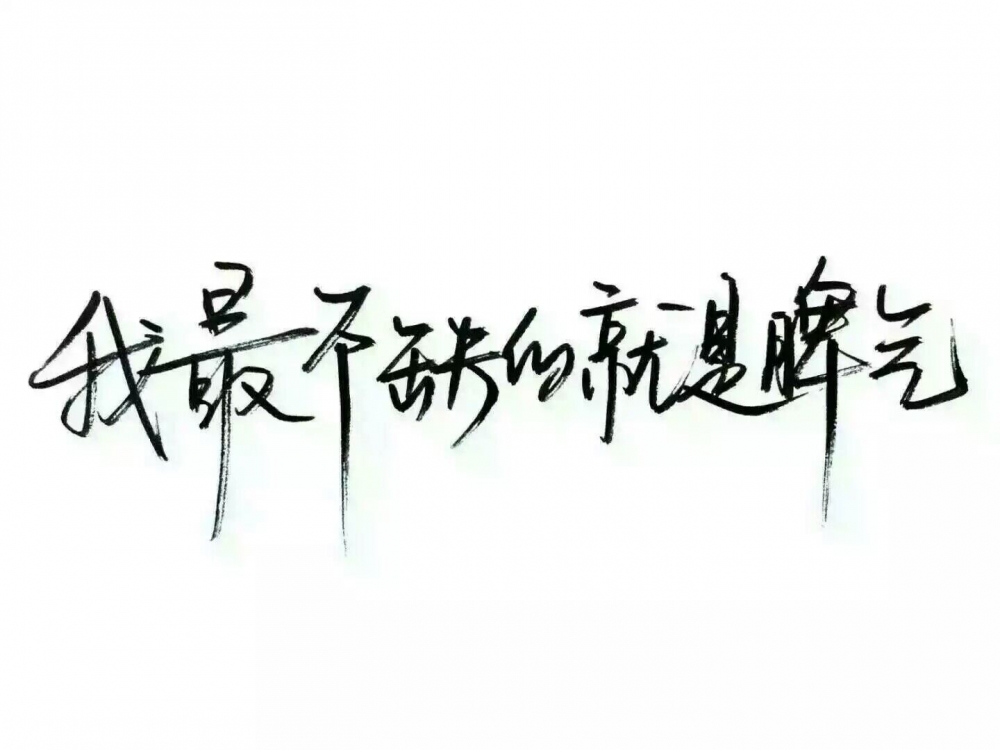 我最不缺的就是脾气